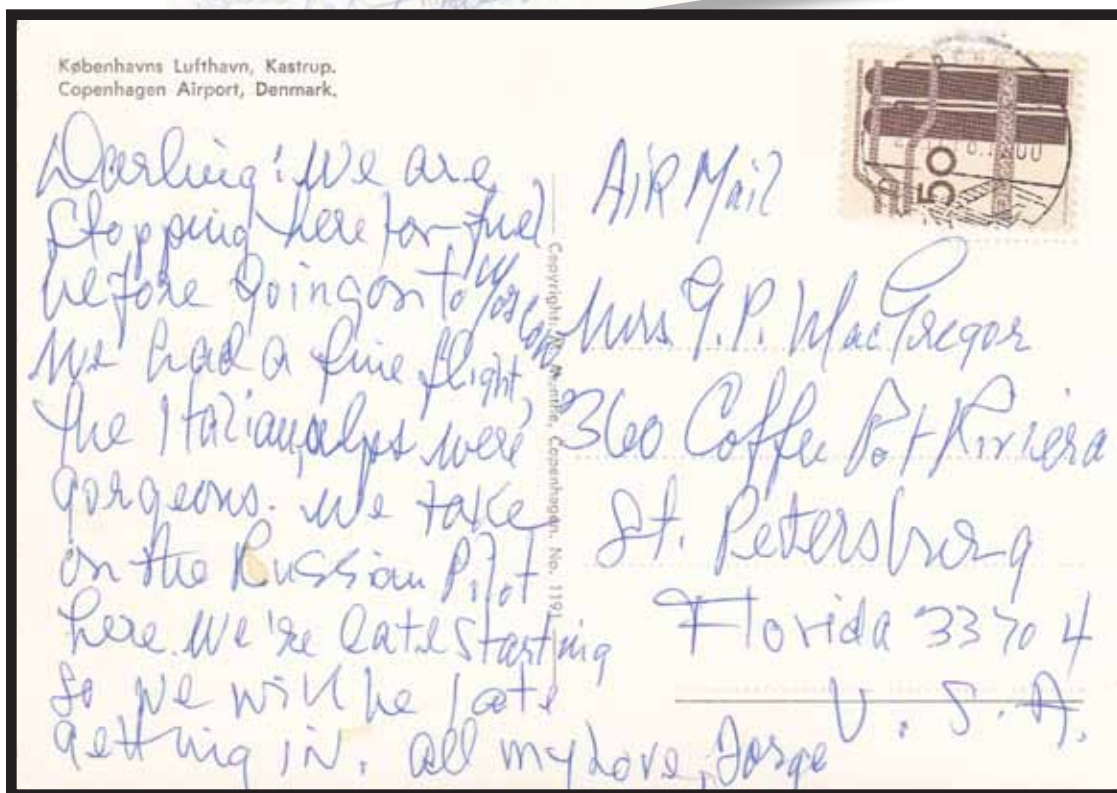 Københavns Lufthavn, Kastrup.
Copenhagen Airport, Denmark.
Darling: We are
stopping here for fuel
before going on to Moscow
We had a fine flight,
the Italian alps were
gorgeous. We take
on the Russian Pilot
here. We're late starting
so we will be late
getting in. All my Love,
Copenhagen. No. 119
50
AIR Mail
Mrs G.P. MacGregor
360 Coffee Pot Riviera
St. Petersburg
Florida 33704
U.S.A.